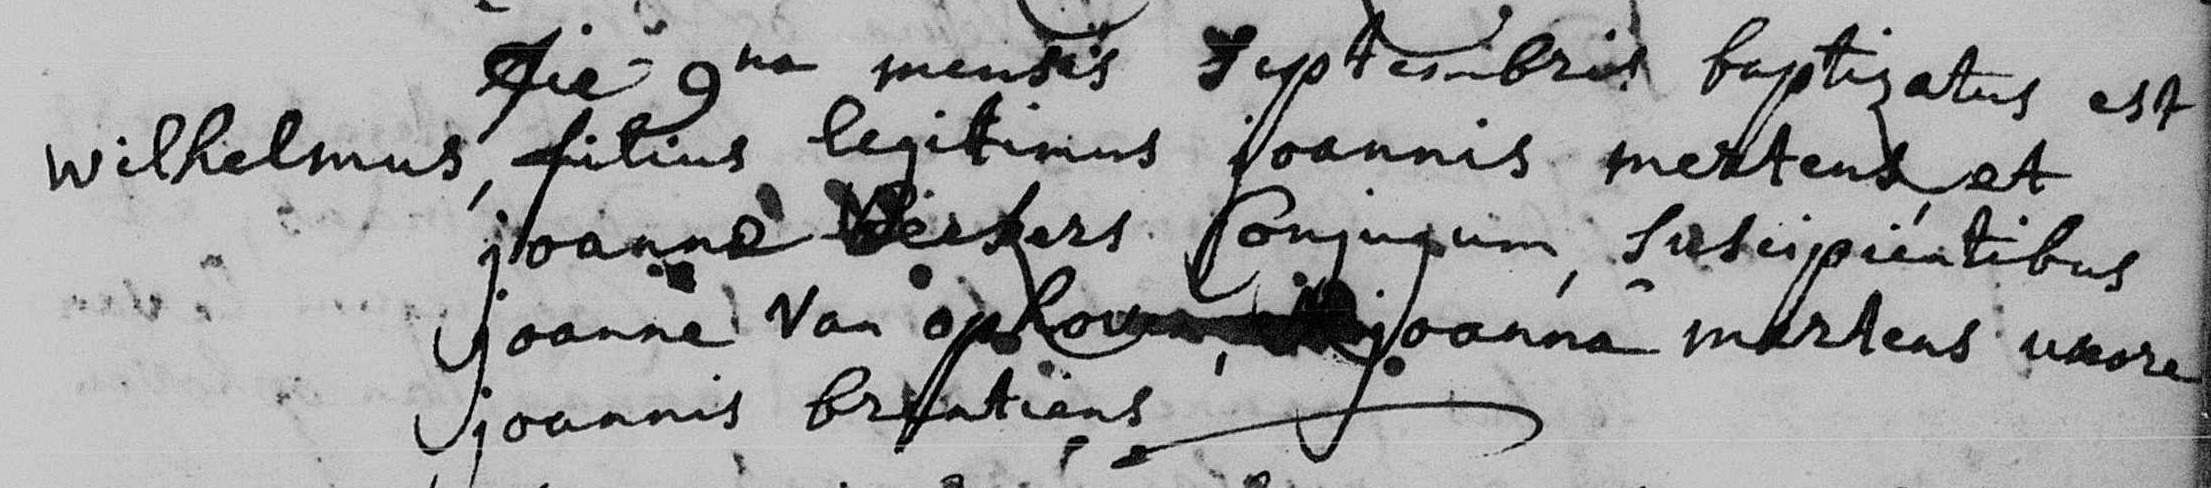 Die 9na mensis Septembris baptizatus est
Wilhelmus, filius legitimus joannis mertens, et
joanne Conjugum, Suscipientibus
joanne Van ophoven, joanna mertens uxore
joannis brentiens